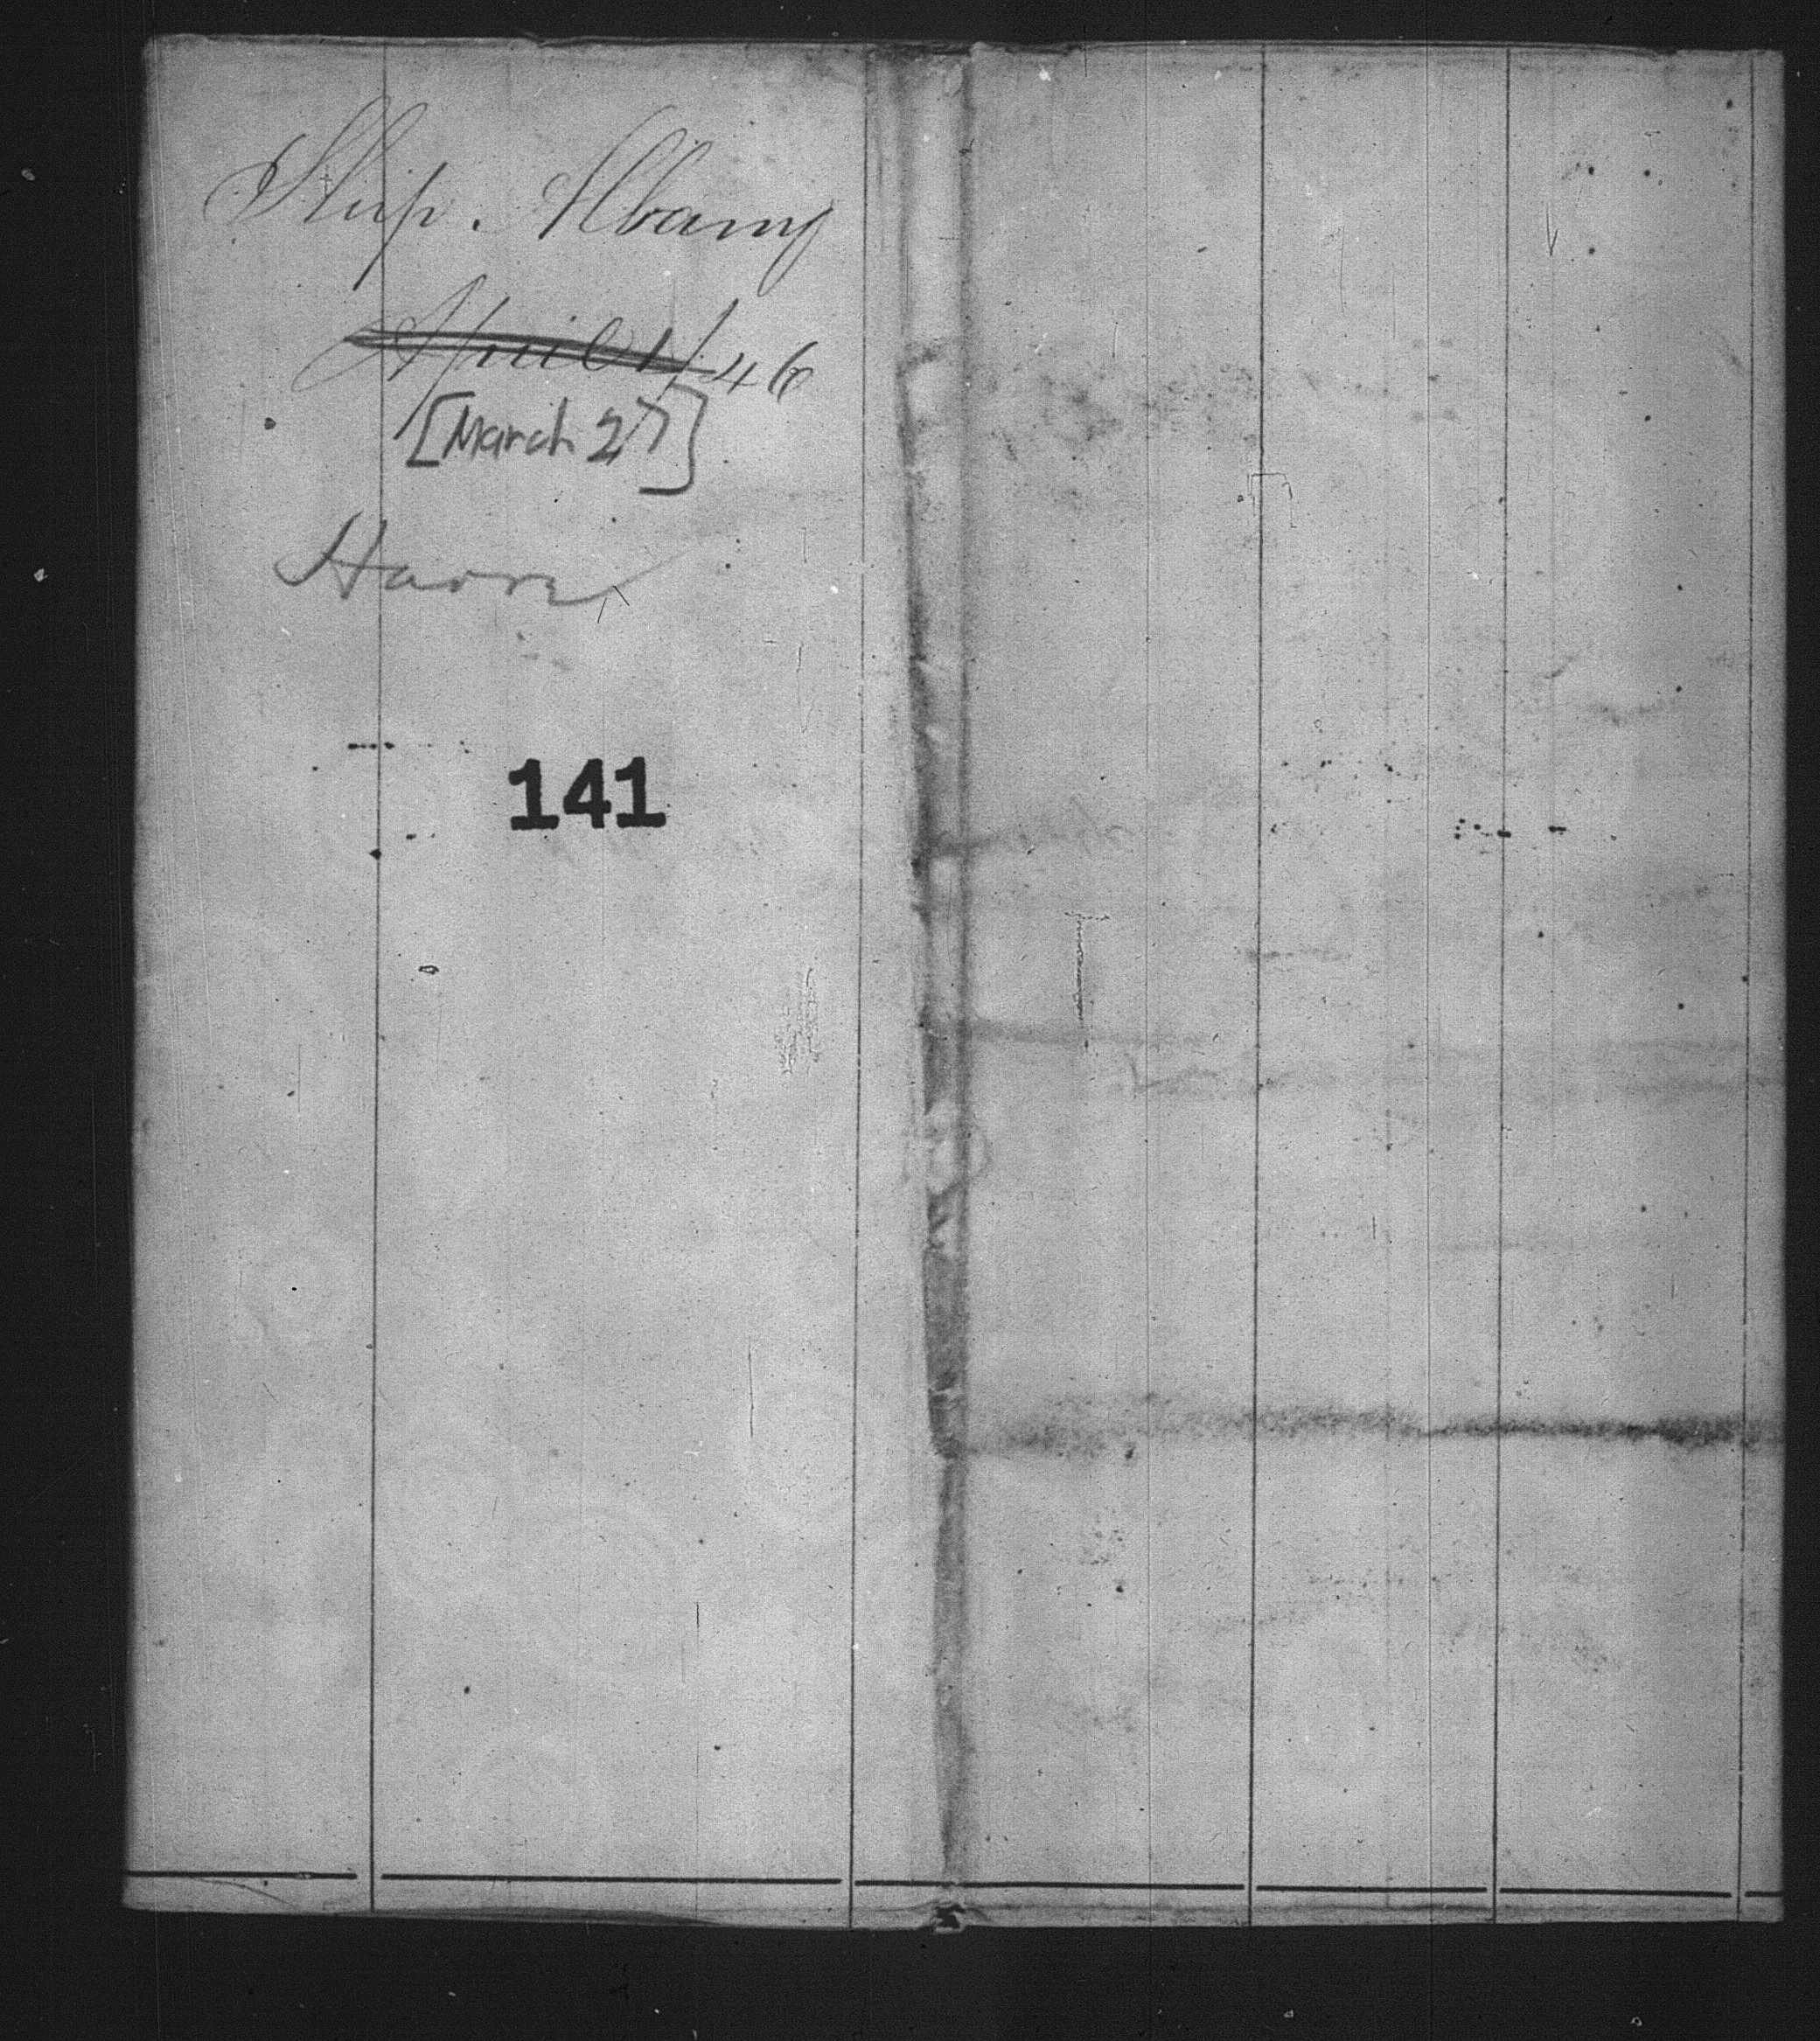 Ship. Albany
April 1/46
[March 27]
Havre
141